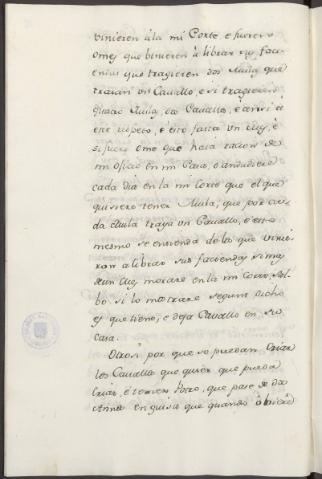 vinieren à la mi Corte, e fueren
omes que binieren à librar sus facien
das que trageren dos Mulas que
traian un Cavallo, e si trageren
quatro Mulas, dos Cavallos, e à
este respeto, e esto fasta un Mes, è
si fuere ome que haia racion de
mi oficio en mi Casa, o andudiere
cada dia en la mi Corte que el que
quisiere tener Mula, que por ca
da Mula traya un Cavallo, e esto
mesmo se entienda de los que vinie
ron a librar sus faciendas si mas
de un Mes morare en la mi Corte, sal
bo si lo mostrare segun dicho
es que tiene, e deja Cavallo en su
casa.
Otrosi, por que se puedan criar
los Cavallos que quier que pueda
criar, è tener Potro, que pase de dos
Annos en guisa que quando obiere